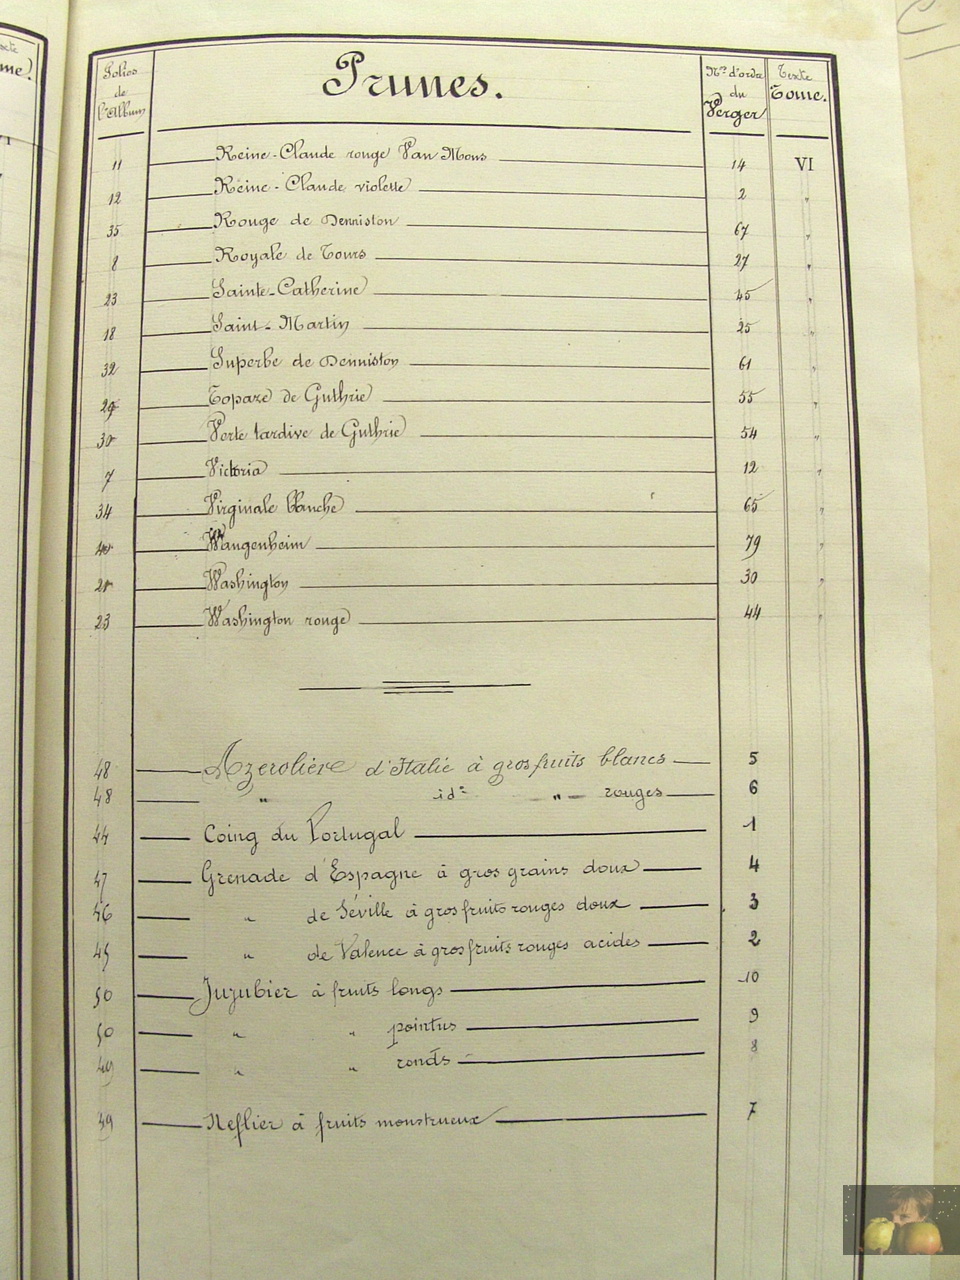 Folios de l'Album
Prunes.
Nos d'ordre du Verger
Texte Tome.
11 Reine-Claude rouge Van Mons 14 VI
12 Reine-Claude violette 2 "
35 Rouge de Denniston 67 "
8 Royale de Tours 27 "
23 Sainte-Catherine 45 "
18 Saint-Martin 25 "
32 Superbe de Denniston 61 "
29 Topaze de Guthrie 55 "
30 Verte tardive de Guthrie 54 "
7 Victoria 12 "
34 Virginale blanche 65 "
40 Wangenheim 79 "
21 Washington 30 "
23 Washington rouge 44 "
48 Azerolière d'Italie à gros fruits blancs 5
48 " id° " rouges 6
44 Coing du Portugal 1
47 Grenade d'Espagne à gros grains doux 4
46 " de Séville à gros fruits rouges doux 3
45 " de Valence à gros fruits rouges acides 2
50 Jujubier à fruits longs 10
50 " " pointus 9
49 " " ronds 8
49 Neflier à fruits monstrueux 7